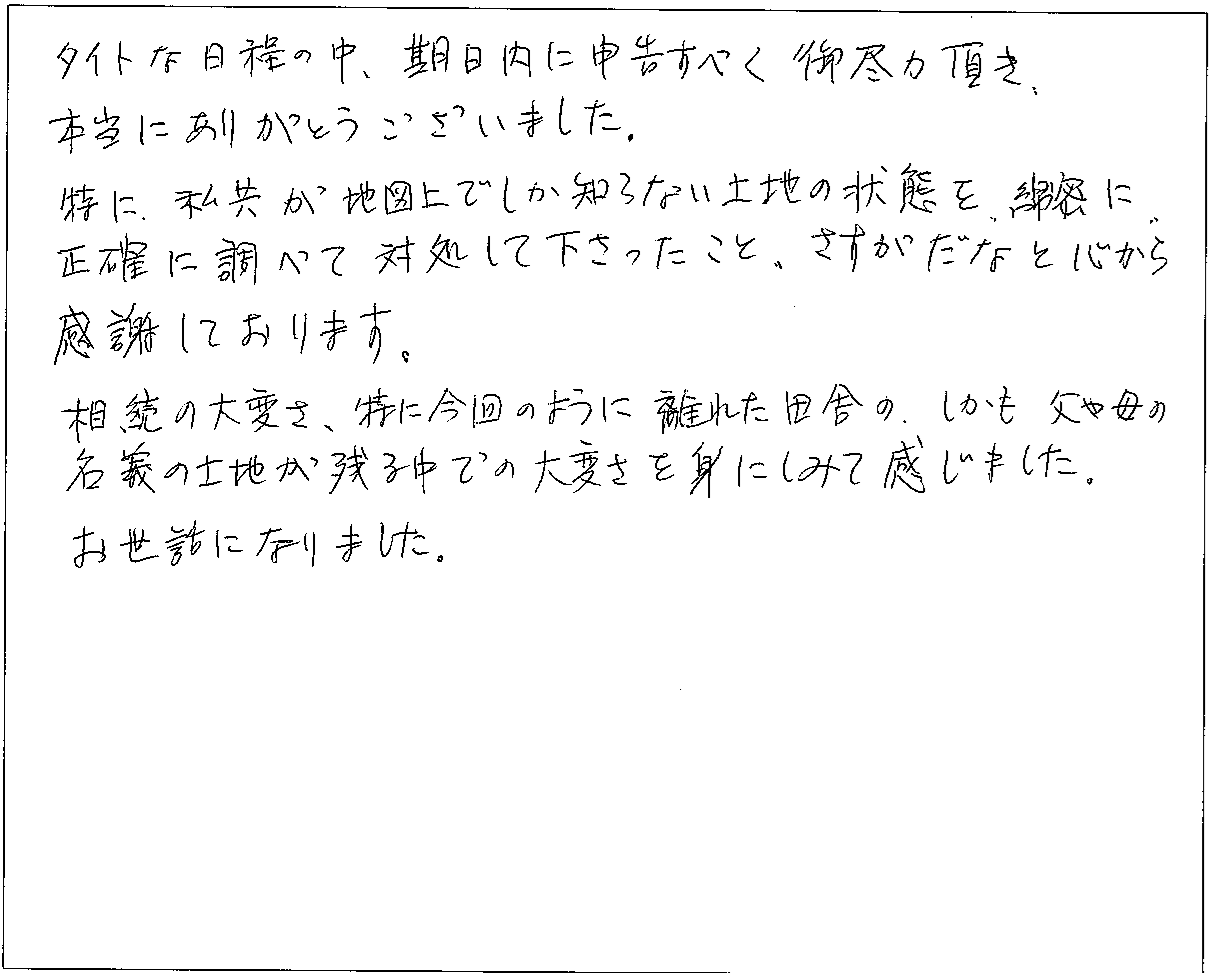 タイトな日程の中、期日内に申告すべく御尽力頂き、
本当にありがとうございました。
特に、私共が地図上でしか知らない土地の状態を、綿密に、
正確に調べて対処して下さったこと、さすがだなと心から
感謝しております。
相続の大変さ、特に今回のように離れた田舎の、しかも父や母の
名義の土地が残る中での大変さを身にしみて感じました。
お世話になりました。